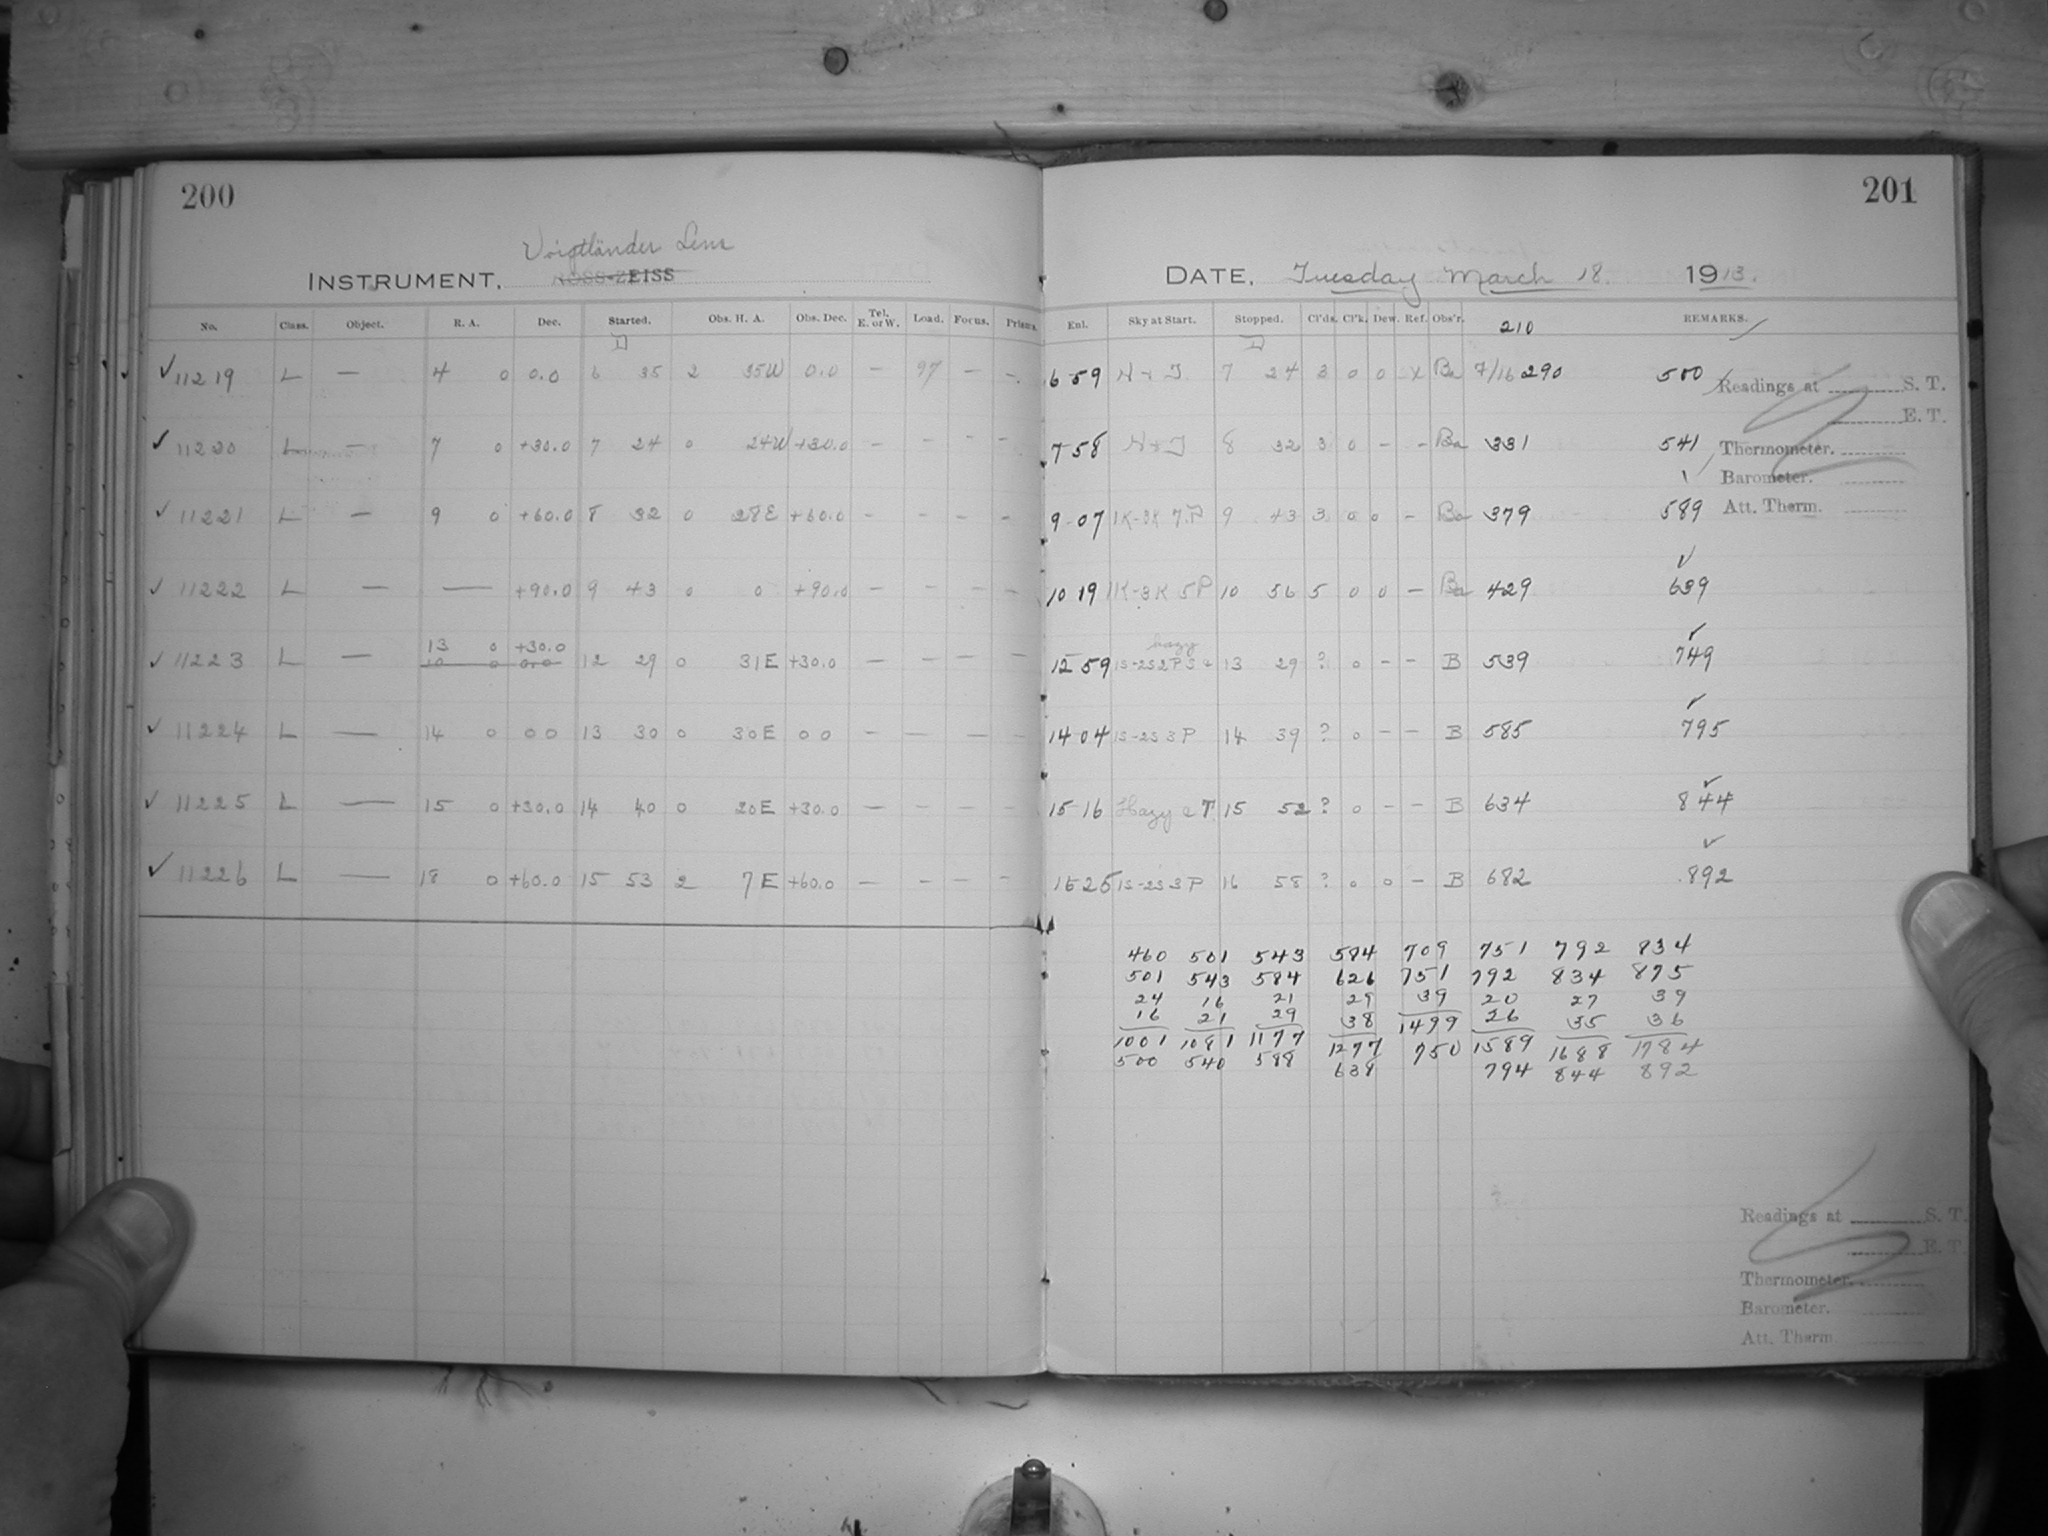 200
Voigtländer Lens
INSTRUMENT, ROSS-ZEISS
No. Class. Object. R. A. Dec. Started. Obs. H. A. Obs. Dec. Tel. E. or W. Load. Focus. Prisms.
✓ 11219 L — 4 0 0.0 6 35 2 35W 0.0 — 97 — —
✓ 11220 L — 7 0 +30.0 7 24 0 24W +30.0 — — — —
✓ 11221 L — 9 0 +60.0 8 32 0 28E +60.0 — — — —
✓ 11222 L — — +90.0 9 43 0 0 +90.0 — — — —
13 0 +30.0
✓ 11223 L — 10 0 0.0 12 29 0 31E +30.0 — — — —
✓ 11224 L — 14 0 0 0 13 30 0 30E 0 0 — — — —
✓ 11225 L — 15 0 +30.0 14 40 0 20E +30.0 — — — —
✓ 11226 L — 18 0 +60.0 15 53 2 7E +60.0 — — — —
201
DATE, Tuesday March 18. 1913.
Enl. Sky at Start. Stopped. Cl'ds. Cl'k. Dew. Ref. Obs'r. 210 REMARKS.
6 59 H & T. 7 24 3 0 0 X Ba 7/16 290 500
Readings at S. T.
E. T.
7 58 H & T 8 32 3 0 - - Ba 331 541
Thermometer.
Barometer.
Att. Therm.
9 07 1K-3K 7.P 9 43 3 0 0 - Ba 379 589
✓
10 19 1K-3K 5P 10 56 5 0 0 — Ba 429 639
hazy ✓
12 59 1S-2S 2P S 13 29 ? 0 - - B 539 749
✓
14 04 1S-2S 3P 14 39 ? 0 - - B 585 795
✓
15 16 Hazy & T 15 52 ? 0 - - B 634 844
✓
16 25 1S-2S 3P 16 58 ? 0 0 - B 682 892
460 501 543 584 709 751 792 834
501 543 584 626 751 792 834 875
24 16 21 29 39 20 27 39
16 21 29 38 1499 26 35 36
1001 1081 1177 1277 750 1589 1688 1784
500 540 588 638 794 844 892
Readings at S. T.
E. T.
Thermometer.
Barometer.
Att. Therm